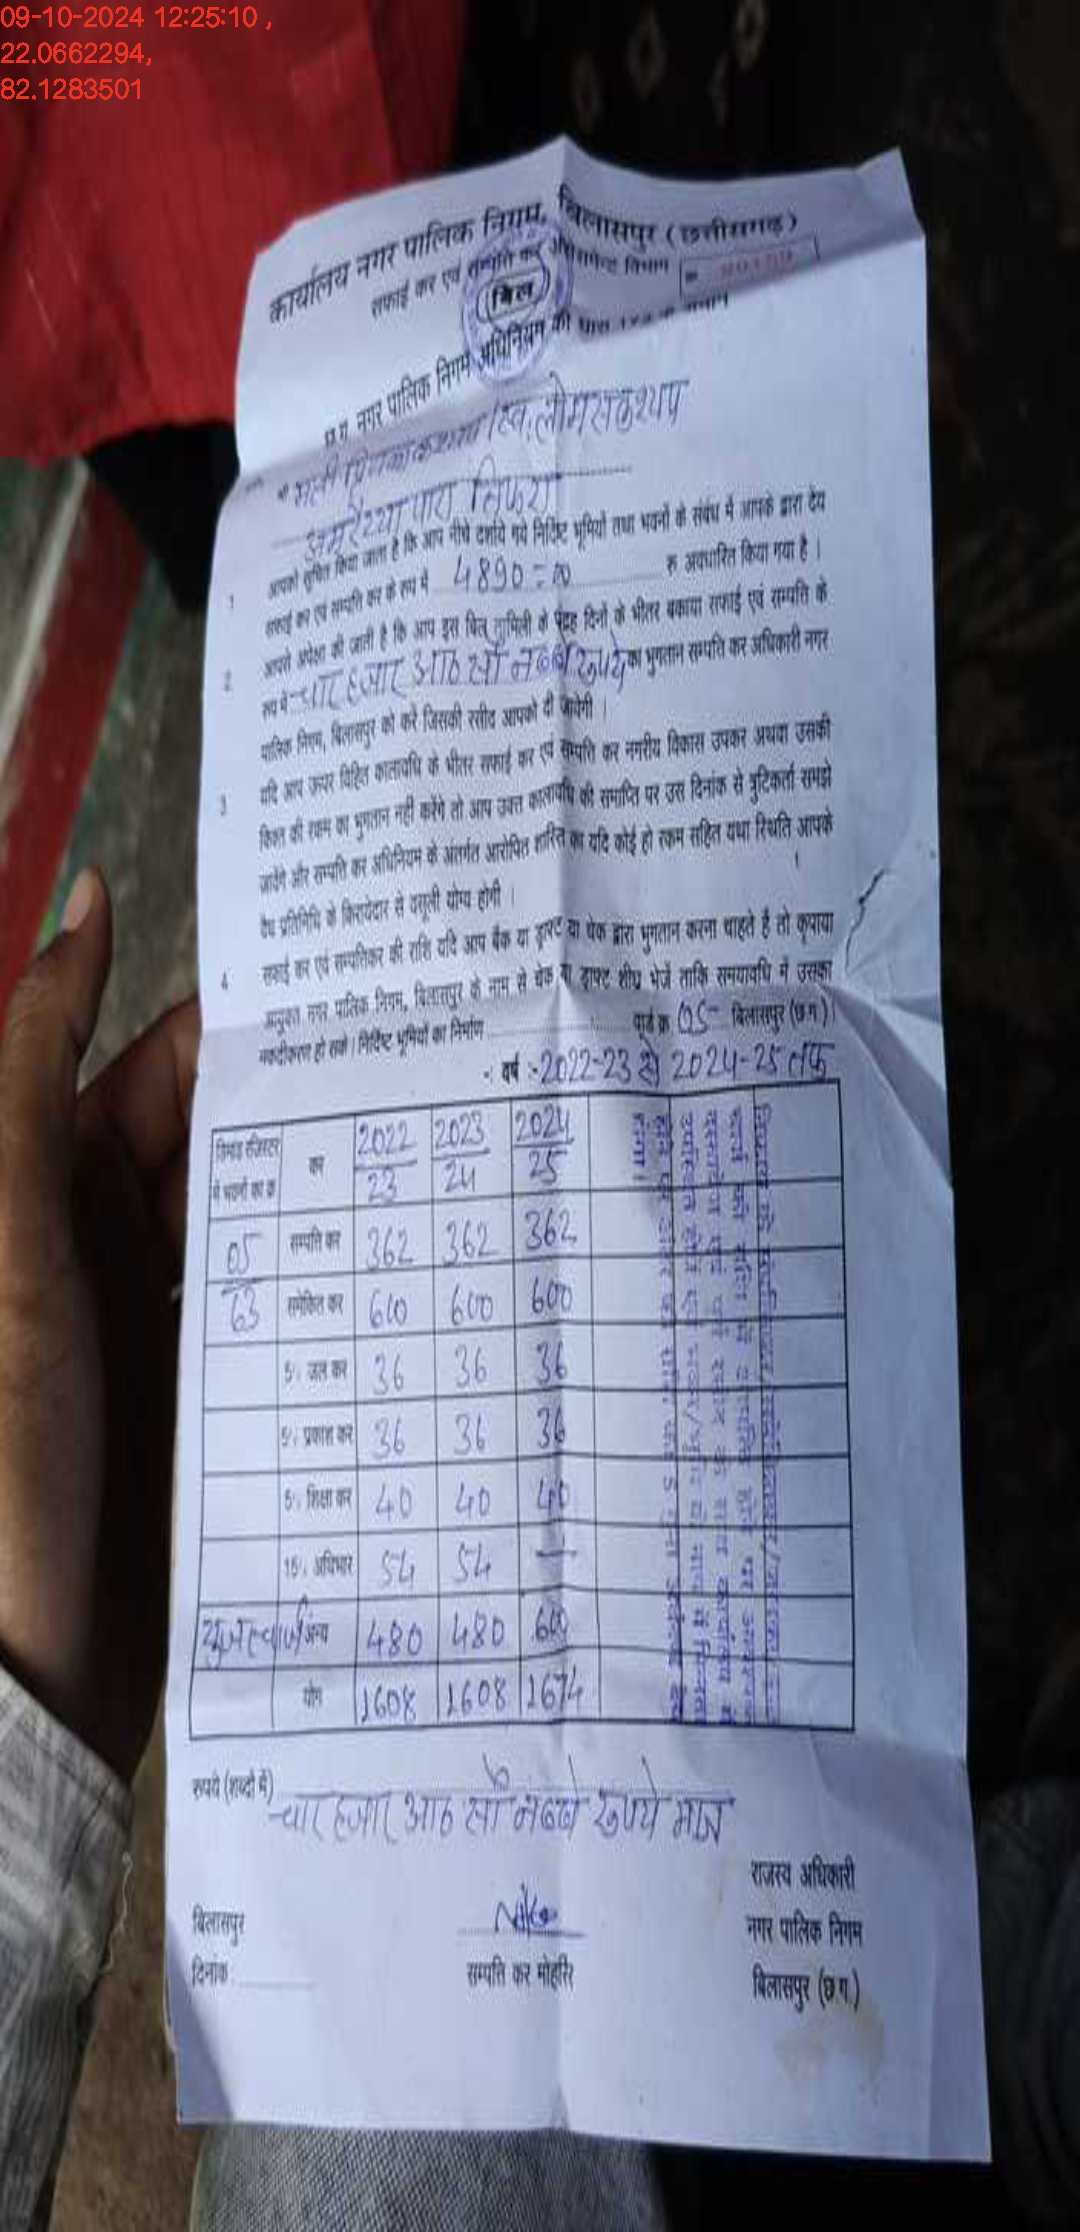 09-10-2024 12:25:10 ,
22.0662294,
82.1283501
कार्यालय नगर पालिक निगम, बिलासपुर (छत्तीसगढ़)
सफाई कर एवं सम्पति कर विभाग
(बिल)
छ.ग. नगर पालिक निगम अधिनियम की धारा
स्व. लोमस कश्यप
तिफरा
1 आपको सूचित किया जाता है कि आप नीचे दर्शाये गये निर्दिष्ट भूमियों तथा भवनों के संबंध में आपके द्वारा देय
सफाई कर एवं सम्पति कर के रूप में 4890=00 रु अवधारित किया गया है ।
2 आपसे अपेक्षा की जाती है कि आप इस बिल तामिली के पंद्रह दिनों के भीतर बकाया सफाई एवं सम्पति के
रूप में चार हजार आठ सौ नब्बे रुपये का भुगतान सम्पति कर अधिकारी नगर
पालिक निगम, बिलासपुर को करें जिसकी रसीद आपको दी जावेगी ।
3 यदि आप ऊपर विहित कालावधि के भीतर सफाई कर एवं सम्पति कर नगरीय विकास उपकर अथवा उसकी
किश्त की रकम का भुगतान नहीं करेंगे तो आप उक्त कालावधि की समाप्ति पर उस दिनांक से त्रुटिकर्ता समझे
जावेंगे और सम्पति कर अधिनियम के अंतर्गत आरोपित शास्ति का यदि कोई हो रकम सहित यथा स्थिति आपके
वैध प्रतिनिधि के किरायेदार से वसूली योग्य होगी ।
4 सफाई कर एवं सम्पतिकर की राशि यदि आप बैंक या ड्राफ्ट या चेक द्वारा भुगतान करना चाहते है तो कृपाया
आयुक्त नगर पालिक निगम, बिलासपुर के नाम से चेक या ड्राफ्ट शीघ्र भेजें ताकि समयावधि में उसका
नकदीकरण हो सके । निर्दिष्ट भूमियों का निर्माण वार्ड क्र 05 बिलासपुर (छ.ग.)।
-: वर्ष :- 2022-23 से 2024-25 तक
डिमांड रजिस्टर में भवनों का क्र कर 2022/23 2023/24 2024/25
05 सम्पति कर 362 362 362
63 समेकित कर 600 600 600
5% जल कर 36 36 36
5% प्रकाश कर 36 36 36
5% शिक्षा कर 40 40 40
15% अधिभार 54 54 —
यूजर चार्ज अन्य 480 480 600
योग 1608 1608 1674
रूपये (शब्दों में) चार हजार आठ सौ नब्बे रुपये मात्र
राजस्व अधिकारी
बिलासपुर नगर पालिक निगम
दिनांक : सम्पति कर मोहर्रिर बिलासपुर (छ.ग.)